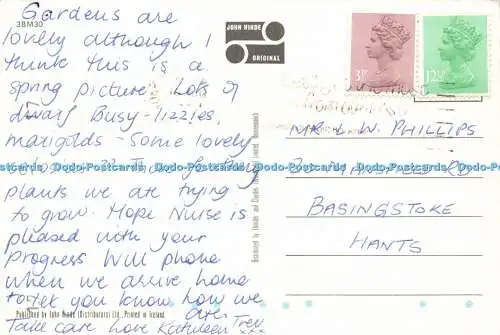 3BM30
Gardens are
lovely although I
think this is a
spring picture. Lots of
dwarf Busy-lizzies,
marigolds - Some lovely
plants we are trying
to grow. Hope Nurse is
pleased with your
progress Will phone
when we arrive home
to let you know how we
are.
Take care love Kathleen Trev
xxx
Published by John Hinde (Distributors) Ltd. Printed in Ireland
JOHN HINDE
ORIGINAL
3½P
12½P
MR L. W. PHILLIPS
RD
BASINGSTOKE
HANTS
Dodo-Postcards Dodo-Postcards Dodo-Postcards Dodo-Postcards Dodo-Postcards